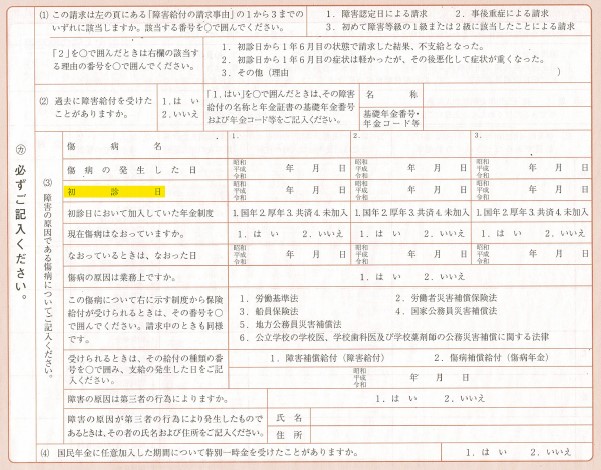 (1) この請求は左の頁にある「障害給付の請求事由」の1から3までの
いずれに該当しますか。該当する番号を○で囲んでください。
1. 障害認定日による請求 2. 事後重症による請求
3. 初めて障害等級の1級または2級に該当したことによる請求
「2」を○で囲んだときは右欄の該当す
る理由の番号を○で囲んでください。
1. 初診日から1年6月目の状態で請求した結果、不支給となった。
2. 初診日から1年6月目の症状は軽かったが、その後悪化して症状が重くなった。
3. その他(理由 )
(2) 過去に障害給付を受けた
ことがありますか。
1.はい
2.いいえ
「1.はい」を○で囲んだときは、その障害
給付の名称と年金証書の基礎年金番号
および年金コード等をご記入ください。
名称
基礎年金番号・
年金コード等
㋕ 必ずご記入ください。
(3) 障害の原因である傷病についてご記入ください。
傷病名 1. 2. 3.
傷病の発生した日 昭和 平成 令和 年 月 日 昭和 平成 令和 年 月 日 昭和 平成 令和 年 月 日
初診日 昭和 平成 令和 年 月 日 昭和 平成 令和 年 月 日 昭和 平成 令和 年 月 日
初診日において加入していた年金制度 1.国年2.厚年3.共済4.未加入 1.国年2.厚年3.共済4.未加入 1.国年2.厚年3.共済4.未加入
現在傷病はなおっていますか。 1.はい 2.いいえ 1.はい 2.いいえ 1.はい 2.いいえ
なおっているときは、なおった日 昭和 平成 令和 年 月 日 昭和 平成 令和 年 月 日 昭和 平成 令和 年 月 日
傷病の原因は業務上ですか。 1.はい 2.いいえ
この傷病について右に示す制度から保険
給付が受けられるときは、その番号を○
で囲んでください。請求中のときも同様
です。
1. 労働基準法 2. 労働者災害補償保険法
3. 船員保険法 4. 国家公務員災害補償法
5. 地方公務員災害補償法
6. 公立学校の学校医、学校歯科医及び学校薬剤師の公務災害補償に関する法律
受けられるときは、その給付の種類の番
号を○で囲み、支給の発生した日をご記
入ください。
1. 障害補償給付(障害給付) 2. 傷病補償給付(傷病年金)
昭和 平成 令和 年 月 日
障害の原因は第三者の行為によりますか。 1.はい 2.いいえ
障害の原因が第三者の行為により発生したもので
あるときは、その者の氏名および住所をご記入ください。
氏名
住所
(4) 国民年金に任意加入した期間について特別一時金を受けたことがありますか。 1.はい 2.いいえ